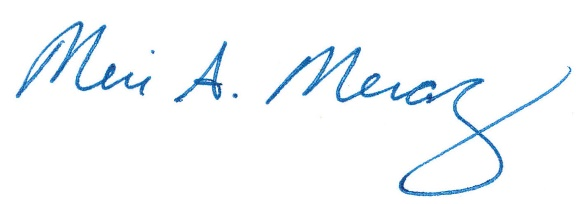 Meri A. Meraz